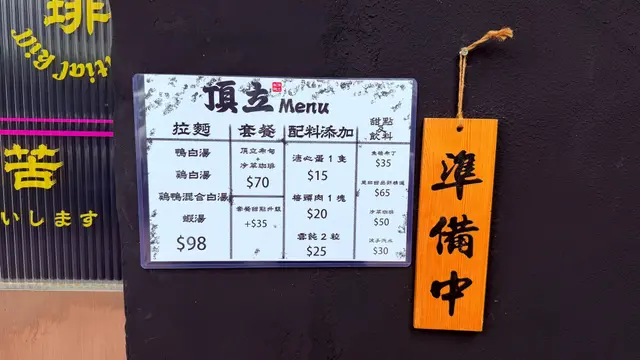 琲
苦
いします
頂立 Menu
拉麵
鴨白湯
鷄白湯
鷄鴨混合白湯
蝦湯
$98
套餐
頂立布甸
+
冷萃咖啡
$70
套餐甜點升級
+$35
配料添加
溏心蛋 1 隻
$15
梅頭肉 1 塊
$20
雲吞 2 粒
$25
甜點
及
飲料
$35
$65
冷萃咖啡
$50
$30
準備中